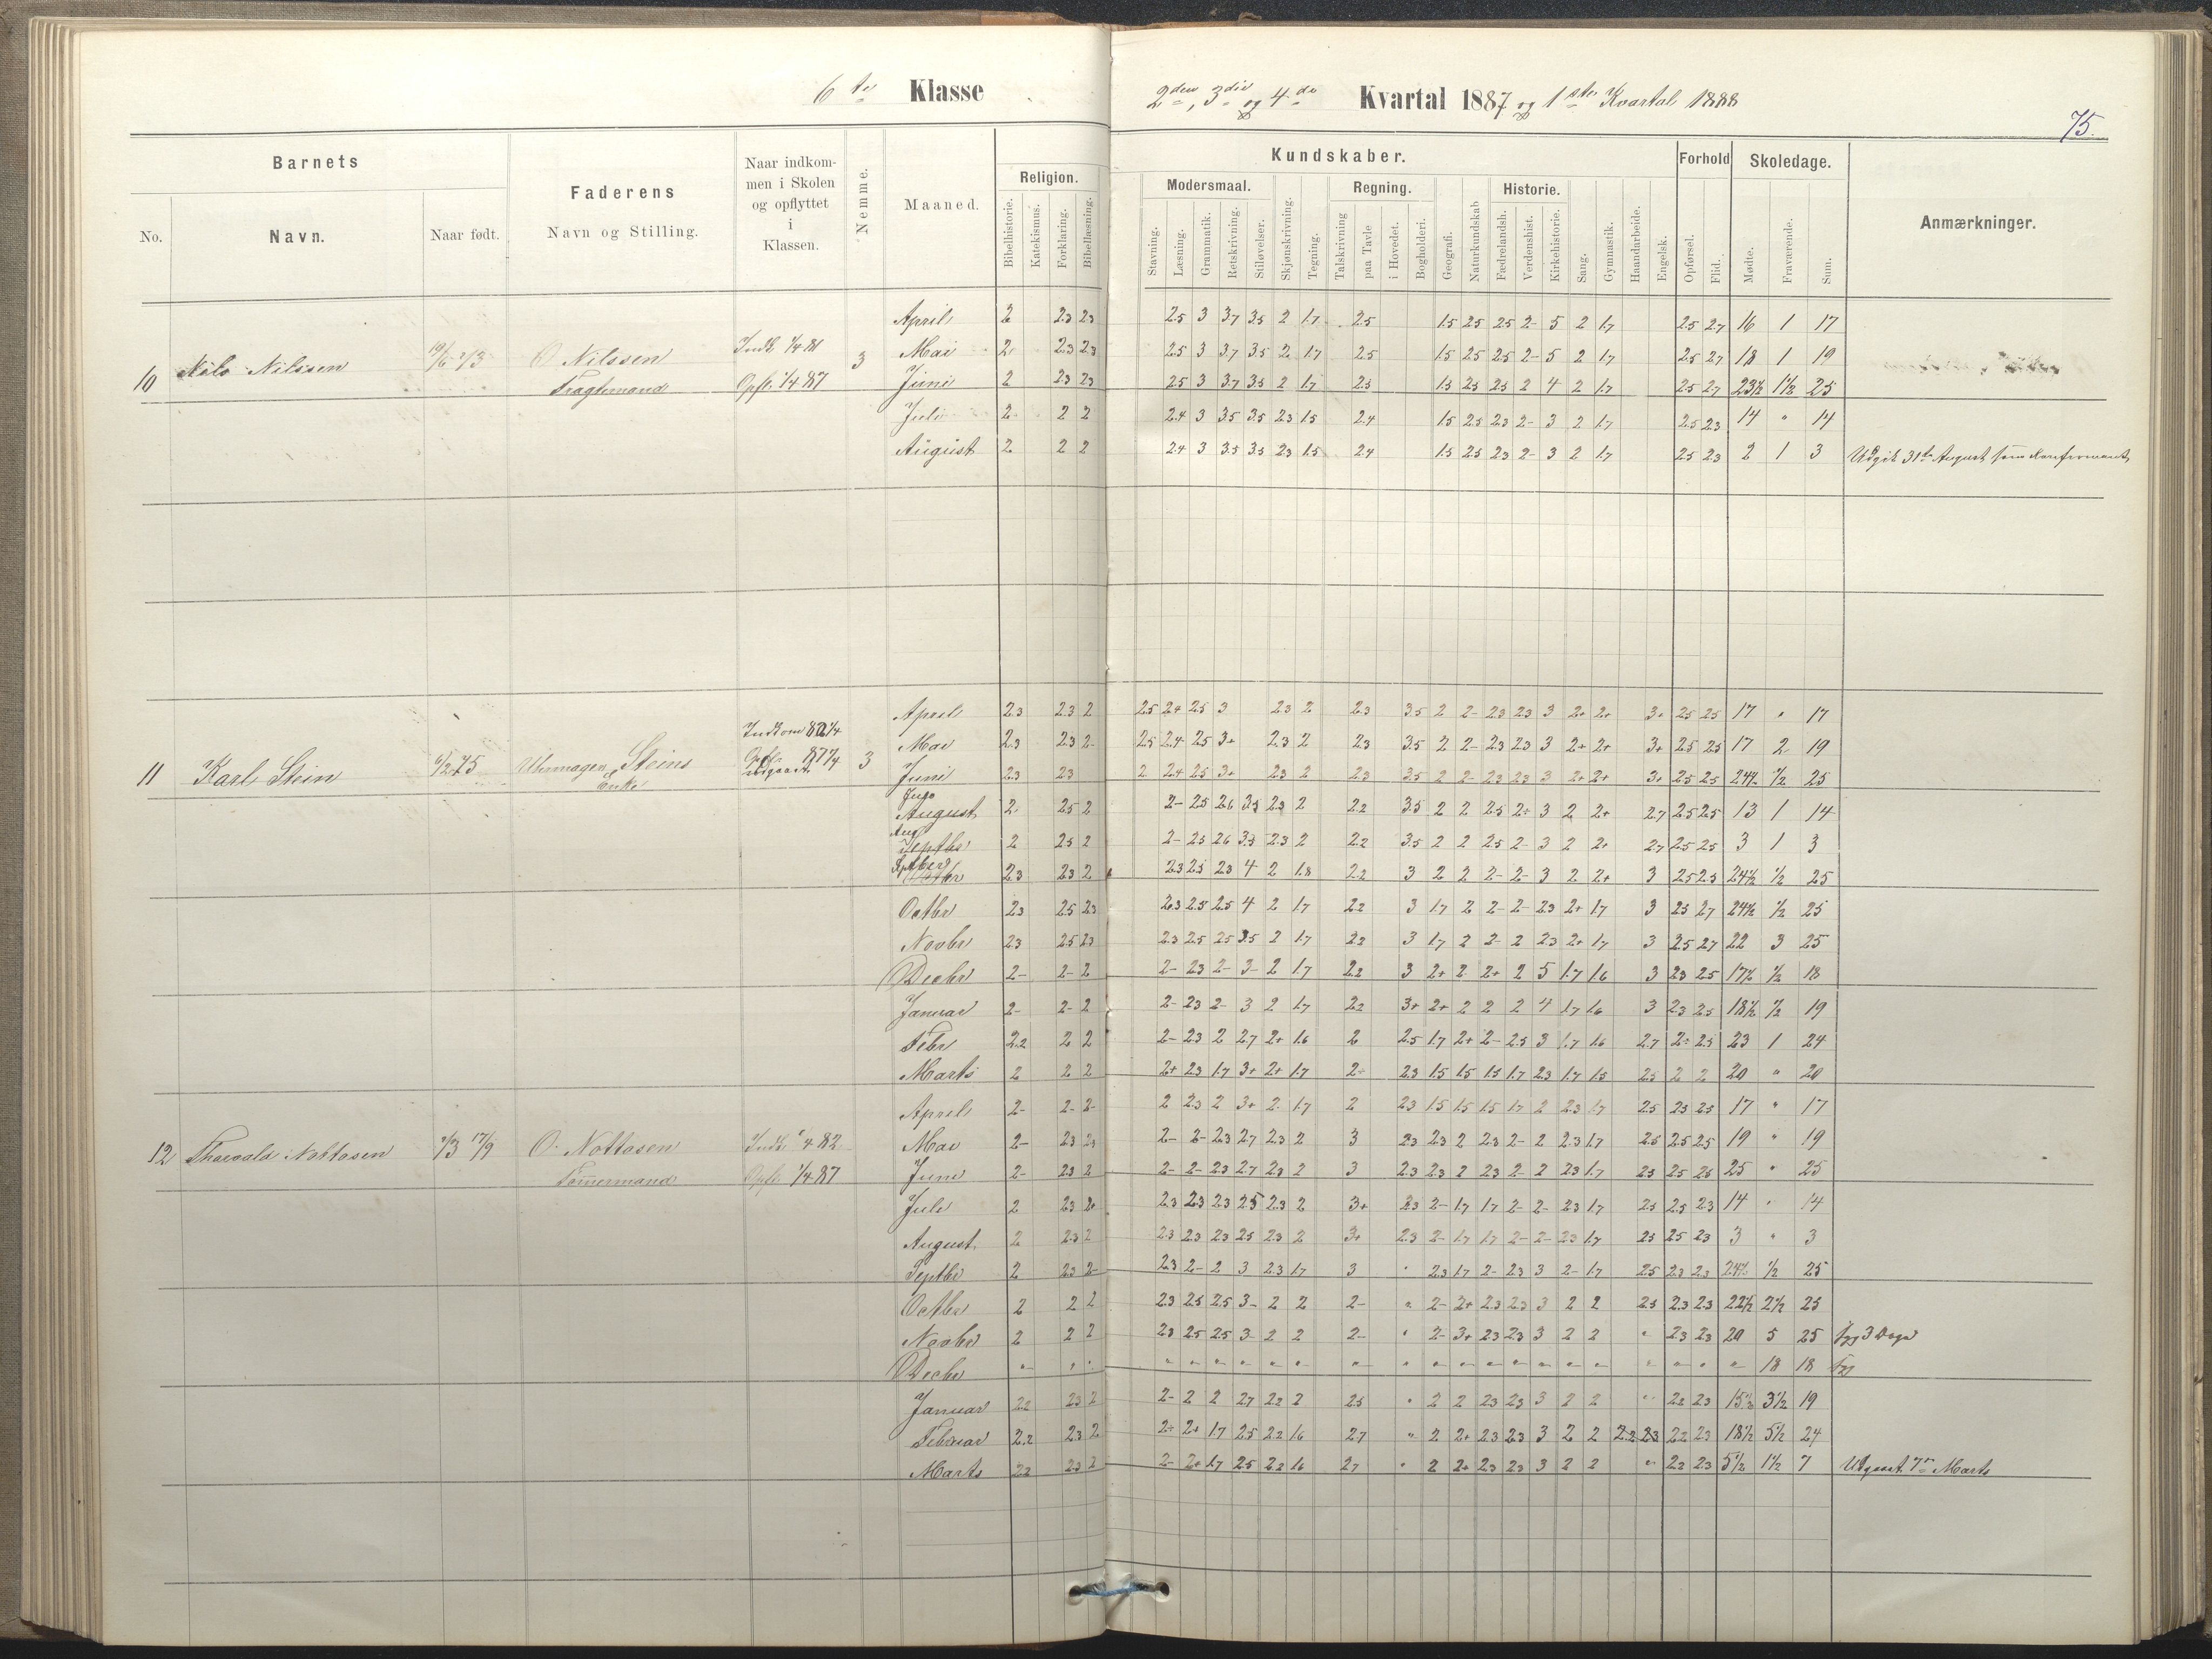 6te Klasse
2den, 3die og 4de Kvartal 1887 og 1ste Kvartal 1888
75.
Barnets
Faderens
Naar indkom-
men i Skolen
og opflyttet
i
Klassen.
Nemme.
Maaned.
Kundskaber.
Forhold
Skoledage.
Anmærkninger.
No.
Navn.
Naar født.
Navn og Stilling.
Religion.
Modersmaal.
Regning.
Historie.
Bibelhistorie.
Katekismus.
Forklaring.
Bibellæsning.
Stavning.
Læsning.
Grammatik.
Retskrivning.
Stiløvelser.
Skjønskrivning.
Tegning.
Talskrivning
paa Tavle
i Hovedet.
Bogholderi.
Geografi.
Naturkundskab
Fædrelandsh.
Verdenshist.
Kirkehistorie.
Sang.
Gymnastik.
Haandarbeide.
Engelsk.
Opførsel.
Flid.
Mødte.
Fraværende.
Sum.
April 2 2.3 2.3 2.5 3 3.7 3.5 2 1.7 2.5 1.5 2.5 2.5 2- 5 2 1.7 2.5 2.7 16 1 17
10 Nils Nilssen O Nilssen Indk 1/4 81 3 Mai 2 2.3 2.3 2.5 3 3.7 3.5 2 1.7 2.5 1.5 2.5 2.5 2- 5 2 1.7 2.5 2.7 18 1 19
Fragtemand Opfl. 1/4 87 Juni 2 2.3 2.3 2.5 3 3.7 3.5 2 1.7 2.5 1.5 2.5 2.5 2 4 2 1.7 2.5 2.7 23½ 1½ 25
Juli 2- 2 2 2.4 3 3.5 3.5 2.3 1.5 2.4 1.5 2.5 2.3 2- 3 2 1.7 2.5 2.3 14 " 14
August 2 2 2 2.4 3 3.5 3.5 2.3 1.5 2.4 1.5 2.5 2.3 2- 3 2 1.7 2.5 2.3 2 1 3 Udgik 31te August som Konfirmant
April 2.3 2.3 2 2.5 2.4 2.5 3 2.3 2 2.3 3.5 2 2- 2.3 2.3 3 2+ 2+ 3+ 2.5 2.5 17 " 17
Mai 2.3 2.3 2- 2.5 2.4 2.5 3+ 2.3 2 2.3 3.5 2 2- 2.3 2.3 3 2+ 2+ 3+ 2.5 2.5 17 2 19
11 Karl Stein Steins Enke 3 Juni 2.3 2.3 2 2.4 2.5 3+ 2.3 2 2.3 3.5 2 2- 2.3 2.3 3 2+ 2+ 3+ 2.5 2.5 24½ ½ 25
August 2 2.5 2 2- 2.5 2.6 3.5 2.3 2 2.2 3.5 2 2 2.5 2+ 3 2 2+ 2.7 2.5 2.5 13 1 14
Aug Septbr 2 2.5 2 2- 2.5 2.6 3.5 2.3 2 2.2 3.5 2 2 2.5 2- 3 2 2+ 2.7 2.5 2.5 3 1 3
Septber 2.3 2.3 2 2.3 2.5 2.3 4 2 1.8 2.2 3 2 2 2- 2- 3 2 2+ 3 2.5 2.3 24½ ½ 25
Octbr 2.3 2.5 2.3 2.3 2.5 2.5 4 2 1.7 2.2 3 1.7 2 2- 2- 2.3 2+ 1.7 3 2.5 2.7 24½ ½ 25
Novbr 2.3 2.5 2.3 2.3 2.5 2.5 3.5 2 1.7 2.2 3 1.7 2 2- 2 2.3 2+ 1.7 3 2.5 2.7 22 3 25
Decbr 2- 2- 2 2- 2.3 2- 3- 2 1.7 2.2 3 2+ 2 2+ 2 5 1.7 1.6 3 2.3 2.5 17½ ½ 18
Januar 2- 2- 2 2- 2.3 2- 3 2 1.7 2.2 3+ 2+ 2 2 2 4 1.7 1.6 3 2.3 2.5 18½ ½ 19
Febr 2.2 2 2 2- 2.3 2 2.7 2+ 1.6 2 2.5 1.7 2+ 2- 2.5 3 1.7 1.6 2.7 2- 2.5 23 1 24
Marts 2 2 2 2+ 2.3 1.7 3+ 2+ 1.7 2- 2.3 1.5 1.5 1.5 1.7 2.3 1.7 1.5 2.5 2 2 20 " 20
April 2- 2- 2- 2 2.3 2 3+ 2 1.7 2 2.3 1.5 1.5 1.5 1.7 2 2.3 1.7 2.5 2.3 2.3 17 " 17
12 Thorvald Nottosen O. Nottosen Indk 1/4 82 Mai 2- 2.3 2.3 2- 2- 2.3 2.7 2.3 2 3 2.3 2.3 2 2.3 2- 2 2.3 1.7 2.5 2.5 2.5 19 " 19
Tømermand Opfl. 1/4 87 Juni 2- 2.3 2 2- 2- 2.3 2.7 2.3 2 3 2.3 2.3 2 2.3 2- 2 2.3 1.7 2.5 2.5 2.5 25 " 25
Juli 2 2.3 2+ 2.3 2.3 2.3 2.5 2.3 2 3+ 2.3 2- 1.7 1.7 2- 2- 2.3 1.7 2.5 2.5 2.3 14 " 14
August 2 2.3 2 2.3 2.3 2.3 2.5 2.3 2 3+ 2.3 2- 1.7 1.7 2- 2- 2.3 1.7 2.5 2.5 2.3 3 " 3
Septbr 2 2.3 2- 2.3 2- 2 3 2.3 1.7 3 " 2.3 1.7 2- 2.3 3 2- 1.7 2.5 2.3 2.3 24½ ½ 25
Octbr 2 2 2 2.3 2.5 2.5 3- 2 2 2- " 2- 3+ 2.3 2.3 3 2 2 2.5 2.3 2.3 22½ 2½ 25
Novbr 2 2 2 2.3 2.5 2.5 3- 2 2 2- " 2- 3+ 2.3 2.3 3 2 2 " 2.3 2.3 20 5 25 syg 3 Dage
Decbr " " " " " " " " " " " " " " " " " " " " " " 18 18 syg
Januar 2.2 2.3 2 2- 2 2 2.7 2.2 2 2.5 " 2 2 2.3 2.3 3 2 2 " 2.2 2.3 15½ 3½ 19
Februar 2.2 2.3 2 2+ 2+ 1.7 2.5 2.2 1.6 2.7 " 2 2+ 2.3 2.3 3 2 2 2.2 2.3 2.2 2.3 18½ 5½ 24
Marts 2.2 2.3 2 2- 2+ 1.7 2.5 2.2 1.6 2.7 " 2 2+ 2.3 2.3 3 2 2 " 2.2 2.3 5½ 1½ 7 Marts